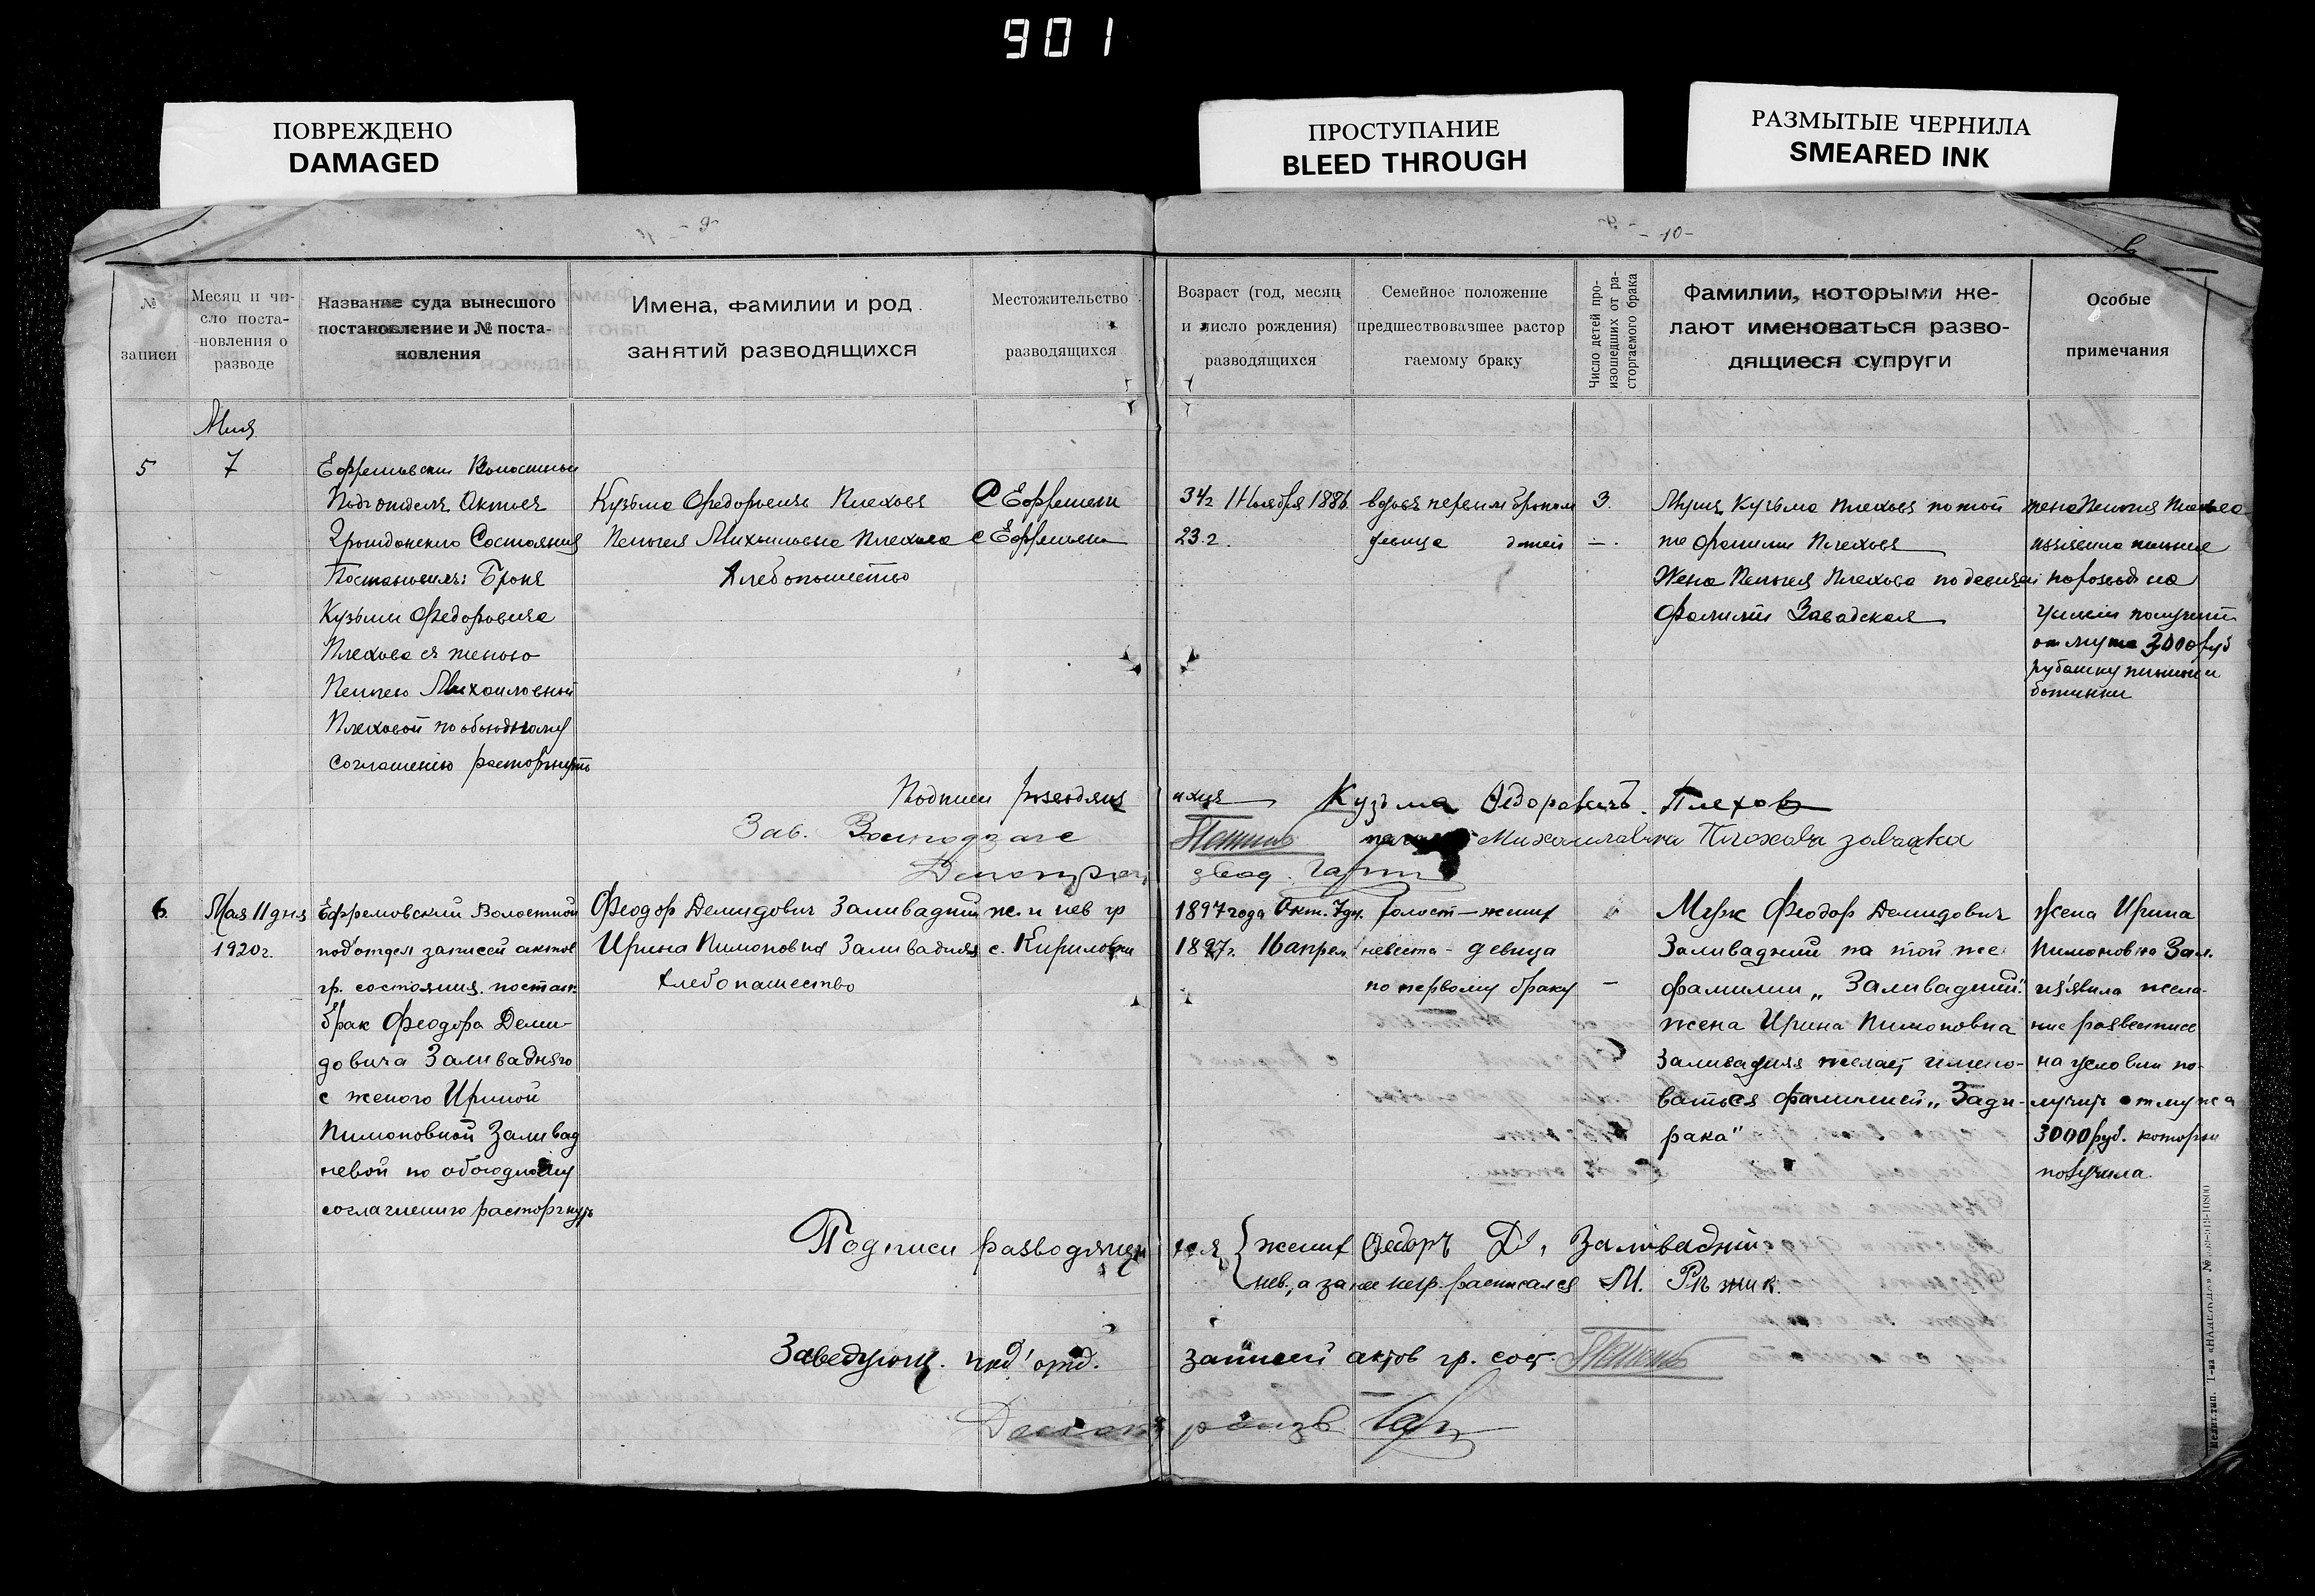 901
ПОВРЕЖДЕНО
DAMAGED
ПРОСТУПАНИЕ
BLEED THROUGH
РАЗМЫТЫЕ ЧЕРНИЛА
SMEARED INK
- 10 -
№ записи
Месяц и чи-
сло поста-
-новления о
разводе
Название суда вынесшого
постановление и № поста-
новления
Имена, фамилии и род
занятий разводящихся
Местожительство
разводящихся
Возраст (год, месяц
и число рождения)
разводящихся
Семейное положение
предшествовавшее растор
гаемому браку
Число детей про-
изошедших от ра-
сторгаемого брака
Фамилии, которыми же-
лают именоваться разво-
дящиеся супруги
Особые
примечания
5
Мая
7
Подъотдел Актов
Гражданского Состояния
Постановил: Брак
Кузьмы Федоровича
Плехова съ женою
Михаиловной
Плеховой по обоюдному
соглашению расторгнуть
Кузьма Федоровичъ Плеховъ
Михаиловна Плехова
Хлебопашество
34 г. 1 Ноября 1886
23 г.
вдовъ первым браком
девица
3.
—.
Мужъ Кузьма Плеховъ по той
же фамилии Плеховъ
Жена Плехова по девичей
фамилии Завадская
жена
изъявила
на развод на
получить
от мужа 3000 руб
рубашку
ботинки
Подписи разводящ
ихся
Кузьма Федоровичъ Плехов
Зав.
Михаиловна Плехова
6.
Мая 11 дня
1920 г.
Ефремовский Волостной
под'отдел записей актов
гр. состояния постан.
брак Феодора Деми-
довича Заливаднаго
с женою Ириной
Пимоновной Заливад
невой по обоюдному
соглашению расторгнуть
Феодор Демидович Заливадний
Ирина Пимоновна Заливадняя
Хлебопашество
ж. и нев гр
с. Кириловки
1897 года Окт. 7 дн.
1897 г. 16 апрел
холост — жених
невеста - девица
по первому браку
—
Муж Феодор Демидович
Заливадний на той же
фамилии „Заливадний"
жена Ирина Пимоновна
Заливадняя желает имено-
ваться фамилией „Зади-
рака"
Жена Ирина
Пимоновна Зал.
из'явила жела-
ние развестись
на условии по-
лучить от мужа
3000 руб. которыи
получила.
Подписи разводящи
хся
жених Федоръ Д. Заливадний
нев., а за нее негр. расписался М.
Заведующ. под'отд.
записей актов гр. сост.